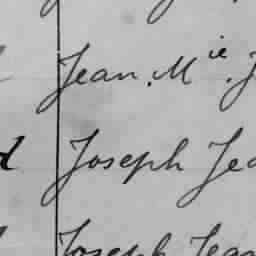 Jean. M ie. J
d Joseph Jea
Joseph Jean